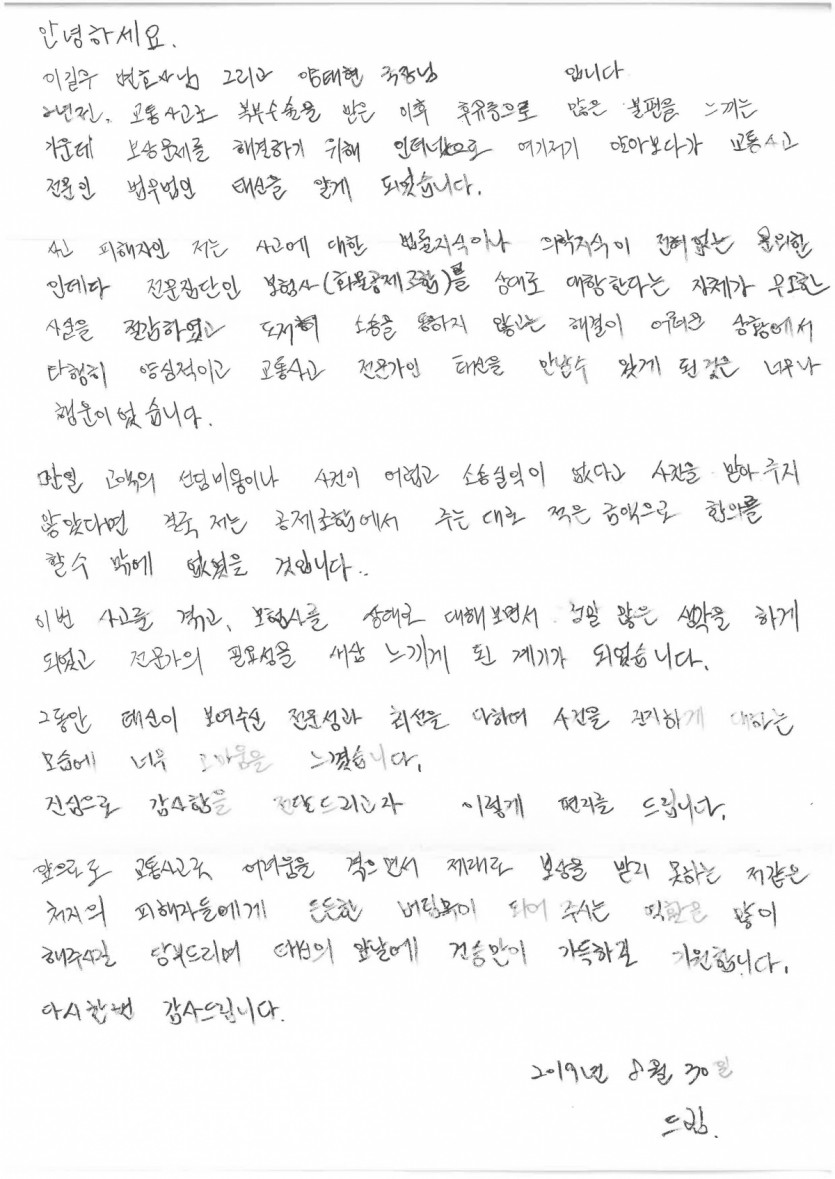 안녕하세요.
이길우 변호사님 그리고 양태현 국장님 입니다
2년전, 교통사고로 복부수술을 받은 이후 후유증으로 많은 불편을 느끼는
가운데 보상문제를 해결하기 위해 인터넷으로 여기저기 알아보다가 교통사고
전문인 법무법인 태신을 알게 되었습니다.
사고 피해자인 저는 사고에 대한 법률지식이나 의학지식이 전혀없는 문외한
인데다 전문집단인 보험사(화물공제조합)를 상대로 대항한다는 자체가 무모한
사실을 절감하였고 도저히 소송을 통하지 않고는 해결이 어려운 상황에서
다행히 양심적이고 교통사고 전문가인 태신을 만날수 있게 된것은 너무나
행운이었습니다.
만일 고액의 선임비용이나 사건이 어렵고 소송실익이 없다고 사건을 맡아주지
않았다면 결국 저는 공제조합에서 주는 대로 적은 금액으로 합의를
할수 밖에 없었을 것입니다..
이번 사고를 겪고, 보험사를 상대로 대해보면서 정말 많은 생각을 하게
되었고 전문가의 필요성을 새삼 느끼게 된 계기가 되었습니다.
그동안 태신이 보여주신 전문성과 최선을 다하며 사건을 진지하게 대하는
모습에 너무 고마움을 느꼈습니다.
진심으로 감사함을 전달드리고자 이렇게 편지를 드립니다.
앞으로도 교통사고로 어려움을 겪으면서 제대로 보상을 받지 못하는 저같은
처지의 피해자들에게 든든한 버팀목이 되어 주시는 역할을 많이
해주시길 당부드리며 태신의 앞날에 건승만이 가득하길 기원합니다.
다시한번 감사드립니다.
2019년 8월 30일
드림.